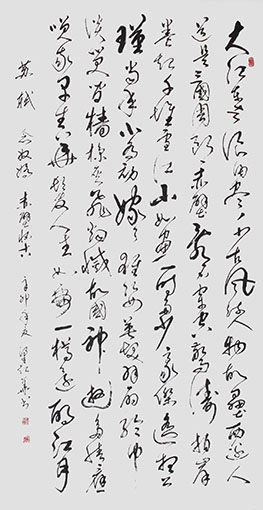 大江东去浪淘尽千古风流人物故垒西边人
道是三國周郎赤壁乱石穿空惊涛拍岸
卷起千堆雪江山如画一时多少豪杰遥想公
瑾当年小乔初嫁了雄姿英发羽扇纶巾
谈笑间樯橹灰飞烟灭故國神游多情应
笑我早生华发人生如梦一樽还酹江月
苏轼 念奴娇 赤壁怀古 辛卯